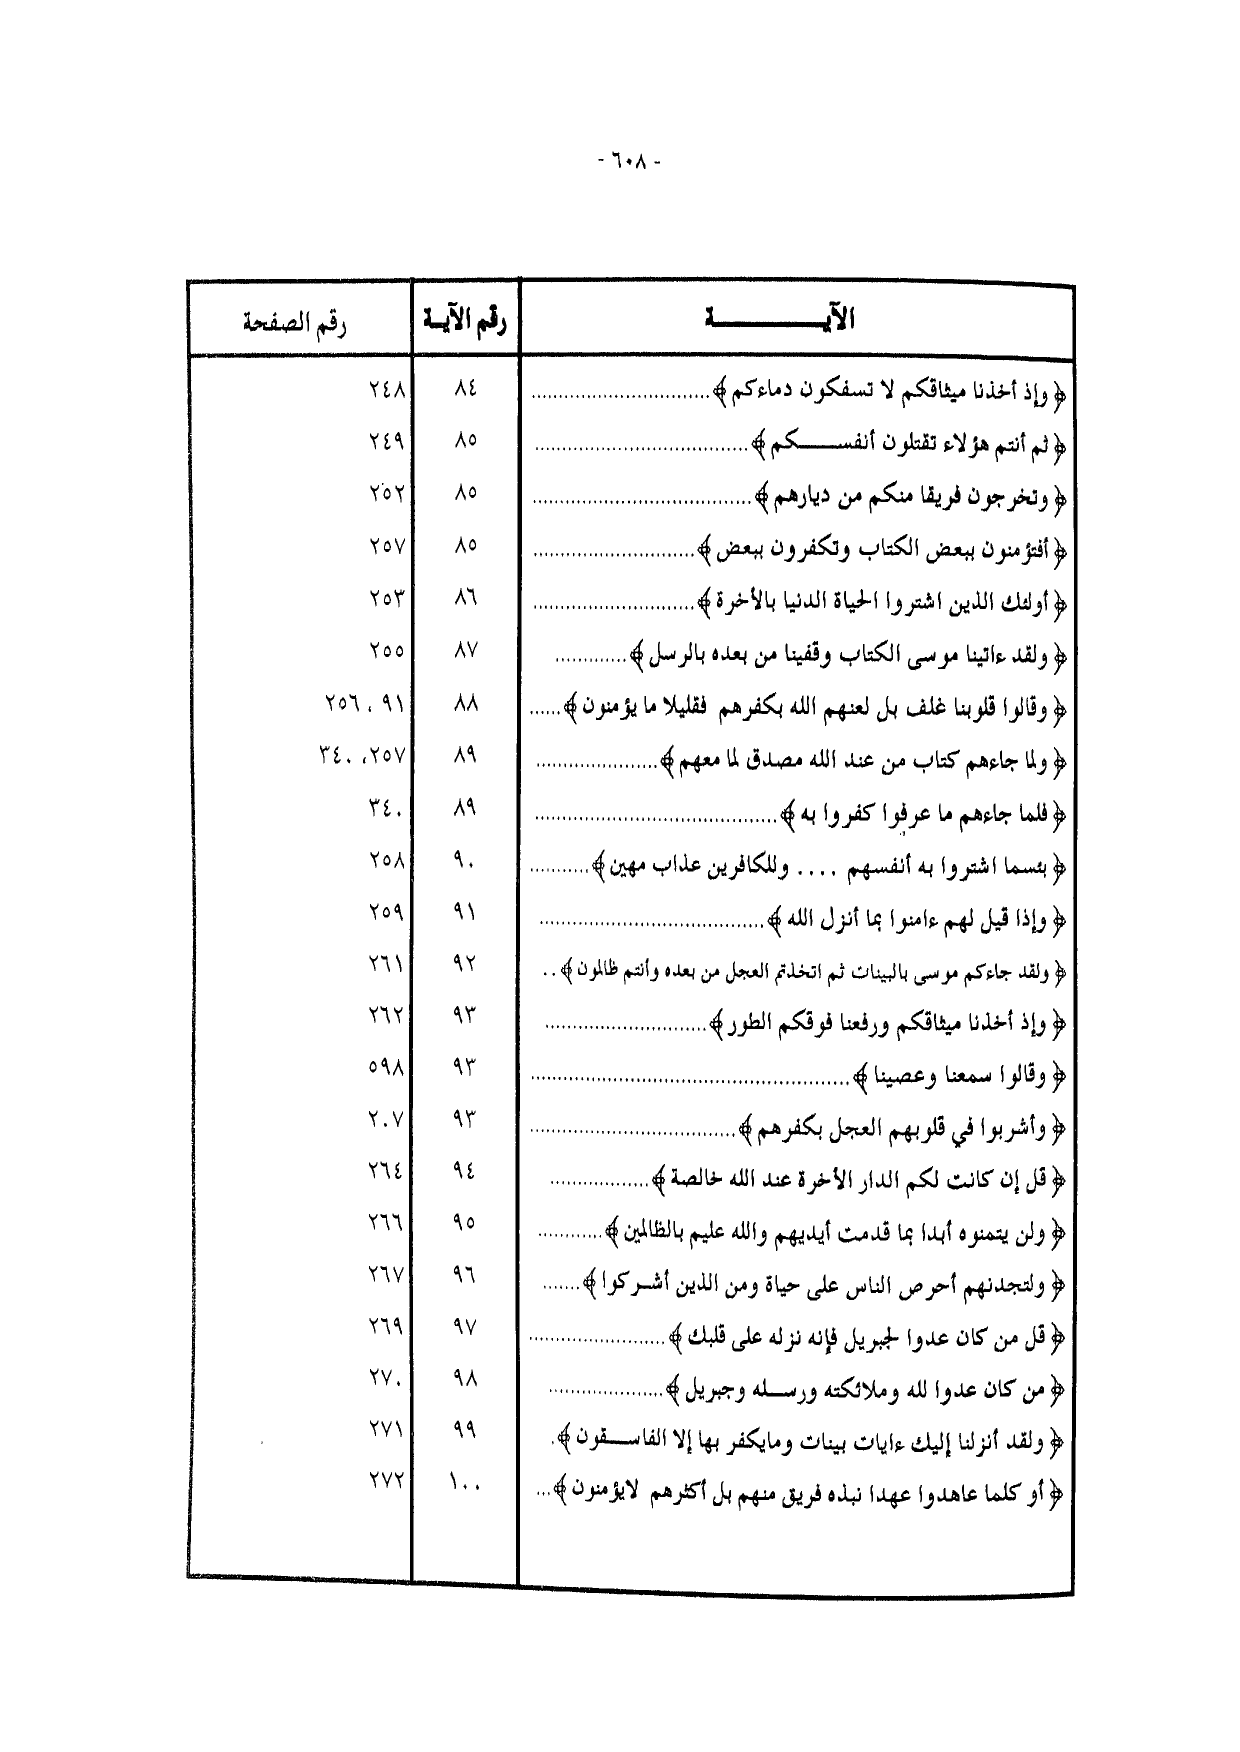 - ٦٠٨ -
الآيـــــــــة رقم الآيـة رقم الصفحة
﴿ وإذ أخذنا ميثاقكم لا تسفكون دماءكم ﴾ ................................. ٨٤ ٢٤٨
﴿ ثم أنتم هؤلاء تقتلون أنفســـــكم ﴾ ....................................... ٨٥ ٢٤٩
﴿ وتخرجون فريقا منكم من ديارهم ﴾ ........................................ ٨٥ ٢٥٢
﴿ أفتؤمنون ببعض الكتاب وتكفرون ببعض ﴾ .............................. ٨٥ ٢٥٧
﴿ أولئك الذين اشتروا الحياة الدنيا بالأخرة ﴾ .............................. ٨٦ ٢٥٣
﴿ ولقد ءاتينا موسى الكتاب وقفينا من بعده بالرسل ﴾ ............. ٨٧ ٢٥٥
﴿ وقالوا قلوبنا غلف بل لعنهم الله بكفرهم فقليلا ما يؤمنون ﴾ ...... ٨٨ ٩١ ، ٢٥٦
﴿ ولما جاءهم كتاب من عند الله مصدق لما معهم ﴾ ...................... ٨٩ ٢٥٧، ٣٤٠
﴿ فلما جاءهم ما عرفوا كفروا به ﴾ ............................................ ٨٩ ٣٤٠
﴿ بئسما اشتروا به أنفسهم .... وللكافرين عذاب مهين ﴾ ........... ٩٠ ٢٥٨
﴿ وإذا قيل لهم ءامنوا بما أنزل الله ﴾ ......................................... ٩١ ٢٥٩
﴿ ولقد جاءكم موسى بالبينات ثم اتخذتم العجل من بعده وأنتم ظالمون ﴾ .. ٩٢ ٢٦١
﴿ وإذ أخذنا ميثاقكم ورفعنا فوقكم الطور ﴾ .............................. ٩٣ ٢٦٢
﴿ وقالوا سمعنا وعصينا ﴾ .......................................................... ٩٣ ٥٩٨
﴿ وأشربوا في قلوبهم العجل بكفرهم ﴾ ..................................... ٩٣ ٢٠٧
﴿ قل إن كانت لكم الدار الأخرة عند الله خالصة ﴾ .................. ٩٤ ٢٦٤
﴿ ولن يتمنوه أبدا بما قدمت أيديهم والله عليم بالظالمين ﴾ ............ ٩٥ ٢٦٦
﴿ ولتجدنهم أحرص الناس على حياة ومن الذين أشـركوا ﴾ ....... ٩٦ ٢٦٧
﴿ قل من كان عدوا لجبريل فإنه نزله على قلبك ﴾ ......................... ٩٧ ٢٦٩
﴿ من كان عدوا لله وملائكته ورسـله وجبريل ﴾ ..................... ٩٨ ٢٧٠
﴿ ولقد أنزلنا إليك ءايات بينات ومايكفر بها إلا الفاســقون ﴾ . ٩٩ ٢٧١
﴿ أو كلما عاهدوا عهدا نبذه فريق منهم بل أكثرهم لايؤمنون ﴾ ... ١٠٠ ٢٧٢